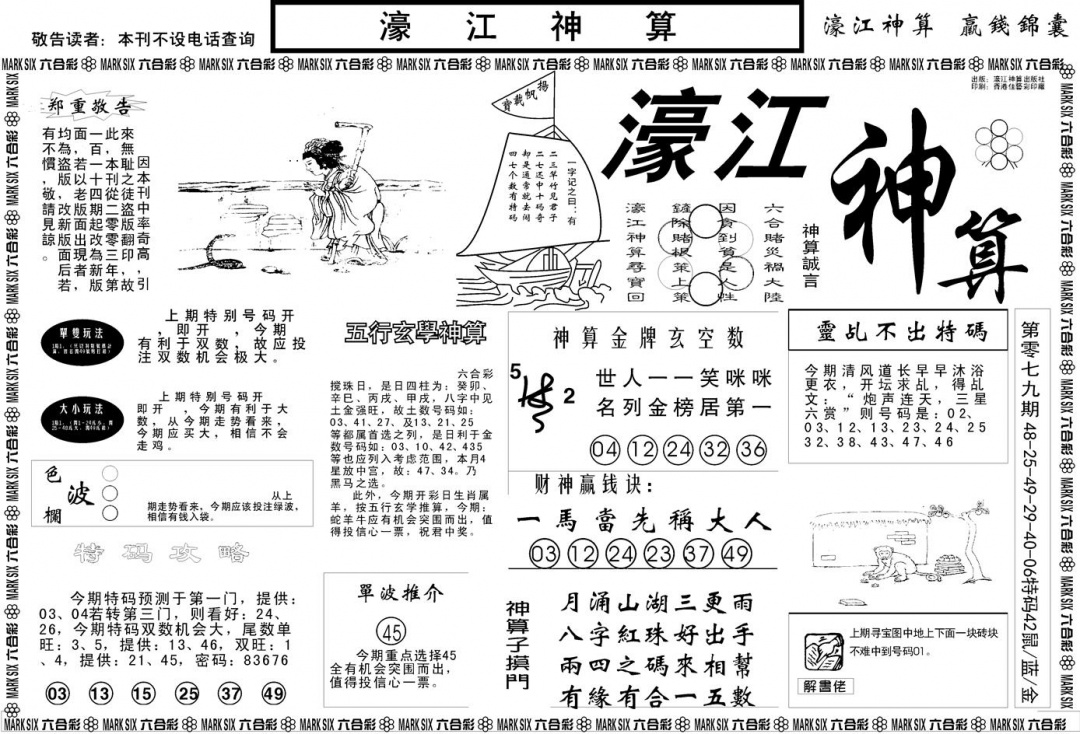 敬告读者：本刊不设电话查询
濠江神算
濠江神算 赢錢錦囊
MARK SIX 六合彩
郑重敬告
因本刊中奇高，引
來無恥之徒盜版翻印，故
此，百本刊從二零零三年第
一面若十四期起改現新版，
面盗以老版面出為后者
均為版，改新版面若，
有不慣，敬請見諒。
揚帆載寶
一字记之曰：有
二三草竹见君子
二七还中十码奇
却是通常就去闹
四七个数有特码
濠江
神算
出版：濠江神算出版社
印刷：香港佳藝彩印廠
六合賭災禍大陸
因貪到貧是人性
鏟除賭根策上策
濠江神算尋寶回
神算誠言
單雙玩法
上期特别号码开
，即开　，今期
有利于双数，故应投
注双数机会极大。
大小玩法
上期特别号码开
即开　，今期有利于大
数，从今期走势看来，
今期应买大，相信不会
走鸡。
色波欄
从上
期走势看来，今期应该投注绿波，
相信有钱入袋。
特码攻略
今期特码预测于第一门，提供：
03、04若转第三门，则看好：24、
26，今期特码双数机会大，尾数单
旺：3、5，提供：13、46，双旺：1
、4，提供：21、45，密码：83676
03 13 15 25 37 49
五行玄學神算
六合彩
搅珠日，是日四柱为：癸卯、
辛巳、丙戌、甲戌，八字中见
土金强旺，故土数号码如：
03、41、27、及13、21、25
等都属首选之列，是日利于金
数号码如：03、10、42、435
等也应列入考虑范围，本月4
星放中宫，故：47、34。乃
黑马之选。
此外，今期开彩日生肖属
羊，按五行玄学推算，今期：
蛇羊牛应有机会突围而出，值
得投信心一票，祝君中奖。
單波推介
45
今期重点选择45
全有机会突围而出，
值得投信心一票。
神算金牌玄空数
5
2
世人一一笑咪咪
名列金榜居第一
04 12 24 32 36
财神赢钱诀：
一馬當先稱大人
03 12 24 23 37 49
神算子摸門
月涌山湖三更雨
八字紅珠好出手
兩四之碼來相幫
有緣有合一五數
靈乩不出特碼
今期清风道长早早沐浴
更衣，开坛求乩，得乩
文：“炮声连天，三星
六赏”则号码是：02、
03、12、13、23、24、25
32、38、43、47、46
上期寻宝图中地上下面一块砖块
不难中到号码01。
解畫佬
第零七九期 48-25-49-29-40-06特码42鼠/蓝/金